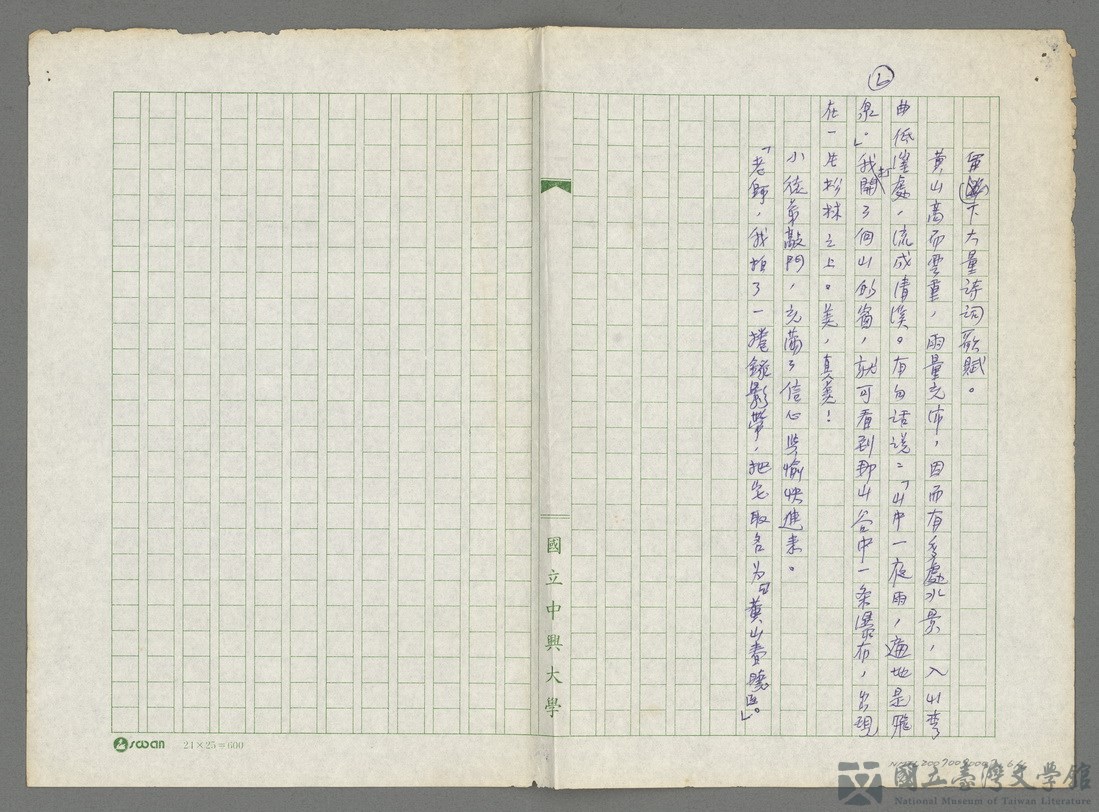 留下大量詩詞歌賦。
黃山高而雲重，雨量充沛，因而有多處水景，入山李
曲低漥處，流成清溪。有句話說：「山中一夜雨，遍地是飛
泉。」我打開了向山的窗，就可看到那山谷中一条瀑布，出現
在一片杉林之上。美，真美！
小徒弟敲門，充滿了信心與愉快進来。
「老師，我拍了一捲錄影帶，把它取名为『黃山春曉』。
L
國立中興大學
swan 24×25=600
國立臺灣文學館
National Museum of Taiwan Literature